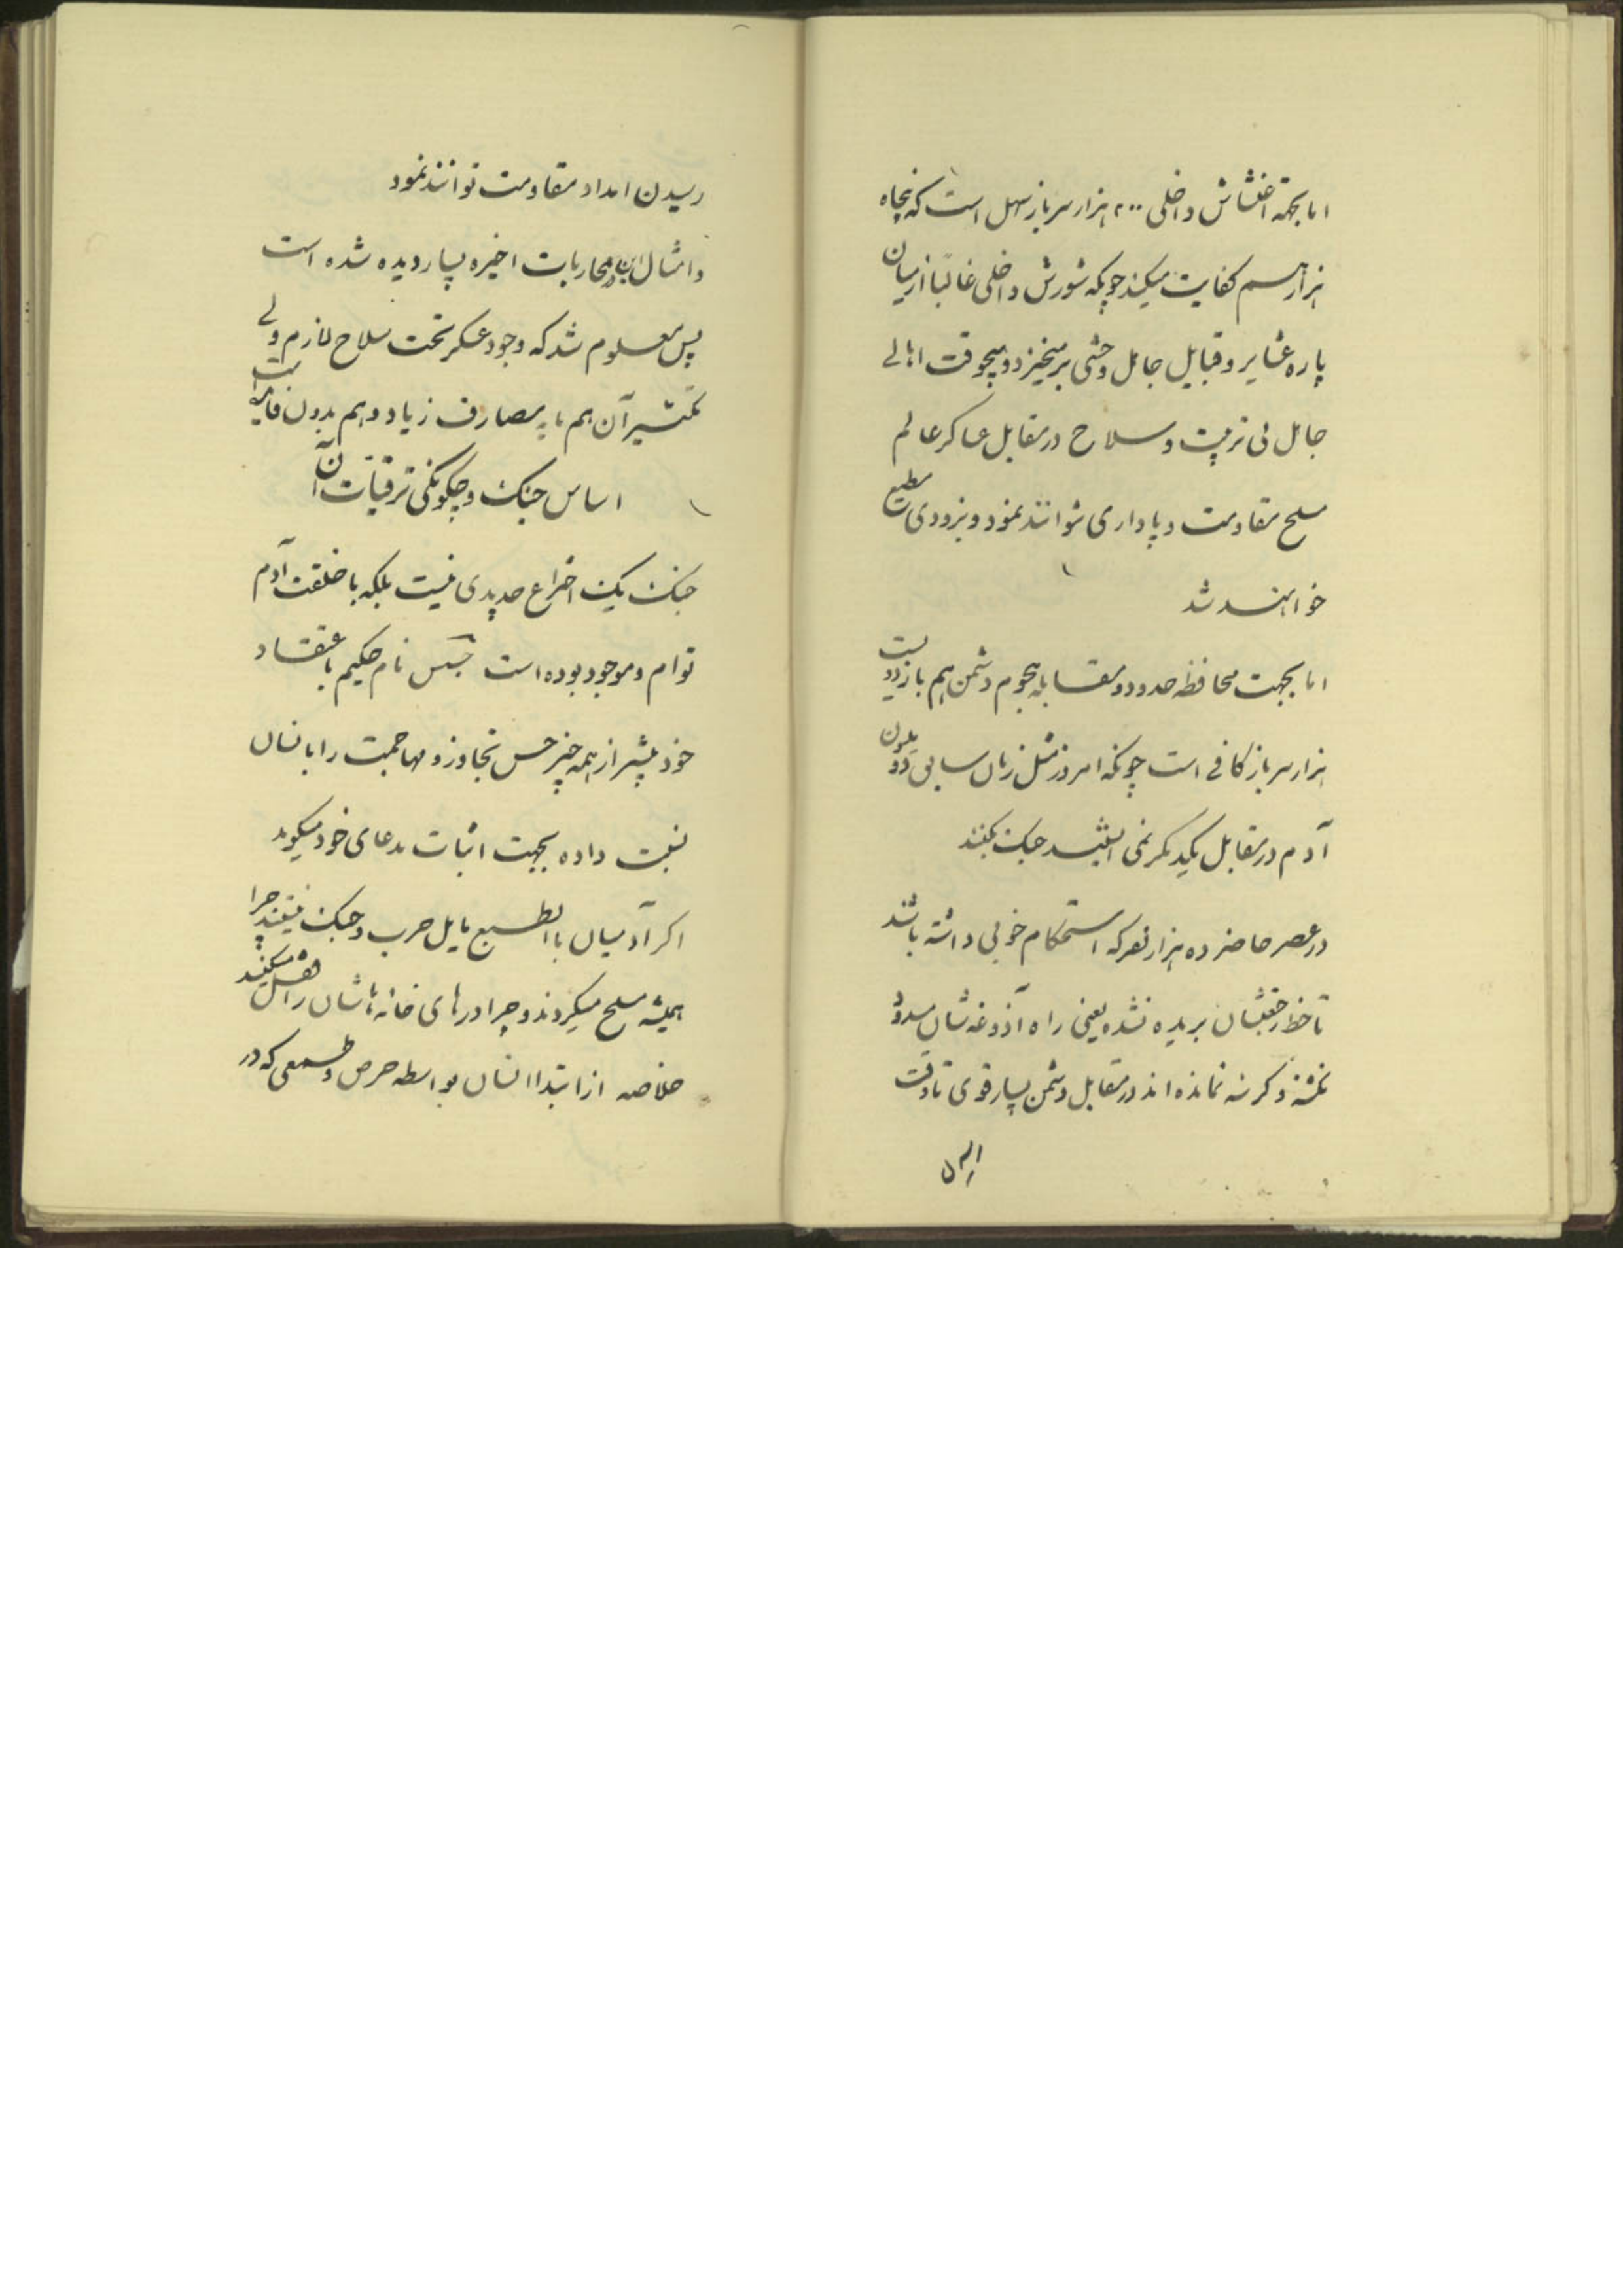 اما بجهة اغتشاش داخلی ۲۰۰ هزار سرباز سهل است که پنجاه
هزار هم کفایت میکند چونکه شورش داخلی غالبًا از میان
پاره عشایر و قبایل جاهل وحشی برمیخیزد و هیچوقت اهالی
جاهل بی تربیت و سلاح در مقابل عساکر عالم
مسلح مقاومت و پاداری نتوانند نمود و بزودی مطیع
خواهند شد
اما بجهت محافظه حدود و مقابله هجوم دشمن هم باز دویست
هزار سرباز کافی است چونکه امروز مثل زمان سابق دو ملیون
آدم در مقابل یکدیگر نمی ایستند جنک بکنند
در عصر حاضر ده هزار نفر که استحکام خوبی داشته باشند
تا خط رجعتشان بریده نشده یعنی راه آذوغه شان مسدود
نگشته و گرسنه نمانده اند در مقابل دشمن بسیار قوی تا وقت
رسیدن امداد مقاومت توانند نمود
و امثال این در محاربات اخیره بسیار دیده شده است
پس معلوم شد که وجود عسکر تحت سلاح لازم ولی
تکثیر آن هم مصارف زیاد و هم بدون فایده است
اساس جنک و چکونکی ترقیات آن
جنک یک اختراع جدیدی نیست بلکه با خلقت آدم
توام و موجود بوده است نام حکیم باعتقاد
خود بیشتر از همه چیز حس تجاوز و مهاجمت را بانسان
نسبت داده بجهت اثبات مدعای خود میکوید
اکر آدمیان باالطبع مایل حرب و جنک نیستند چرا
همیشه مسلح میکردند و چرا درهای خانه هاشان را قفل میکنند
خلاصه از ابتدا انسان بواسطه حرص و طمعی که در